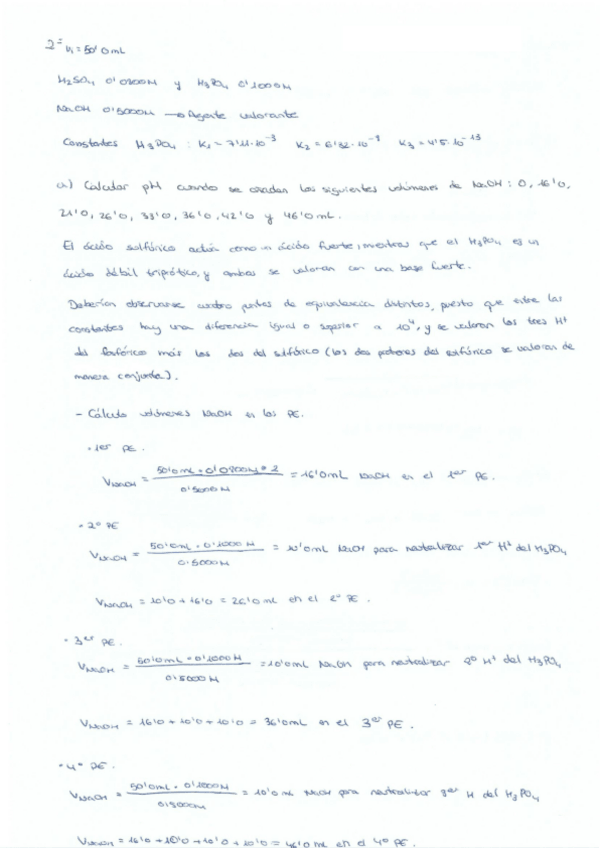 2º V₁ = 50'0 mL
H₂SO₄ 0'0800M y H₃PO₄ 0'1000M
NaOH 0'5000M → Agente valorante
Constantes H₃PO₄ : K₁ = 7'11·10⁻³ K₂ = 6'32·10⁻⁸ K₃ = 4'5·10⁻¹³
a) Calcular pH cuando se añadan los siguientes volúmenes de NaOH : 0, 16'0,
21'0, 26'0, 33'0, 36'0, 42'0 y 46'0 mL.
El ácido sulfúrico actúa como un ácido fuerte, mientras que el H₃PO₄ es un
ácido débil triprótico, y ambos se valoran con una base fuerte.
Deberían observarse cuatro puntos de equivalencia distintos, puesto que entre las
constantes hay una diferencia igual o superior a 10⁴, y se valoran los tres H⁺
del fosfórico más los dos del sulfúrico (los dos protones del sulfúrico se valoran de
manera conjunta).
- Cálculo volúmenes NaOH en los PE.
· 1er PE.
V_NaOH = 50'0mL · 0'0800M · 2 / 0'5000M = 16'0mL NaOH en el 1er PE.
· 2º PE
V_NaOH = 50'0mL · 0'1000M / 0'5000M = 10'0mL NaOH para neutralizar 1er H⁺ del H₃PO₄
V_NaOH = 10'0 + 16'0 = 26'0 mL en el 2º PE.
· 3er PE.
V_NaOH = 50'0mL · 0'1000M / 0'5000M = 10'0mL NaOH para neutralizar 2º H⁺ del H₃PO₄
V_NaOH = 16'0 + 10'0 + 10'0 = 36'0mL en el 3er PE.
· 4º PE.
V_NaOH = 50'0mL · 0'1000M / 0'5000M = 10'0 mL NaOH para neutralizar 3er H del H₃PO₄
V_NaOH = 16'0 + 10'0 + 10'0 + 10'0 = 46'0 mL en el 4º PE.